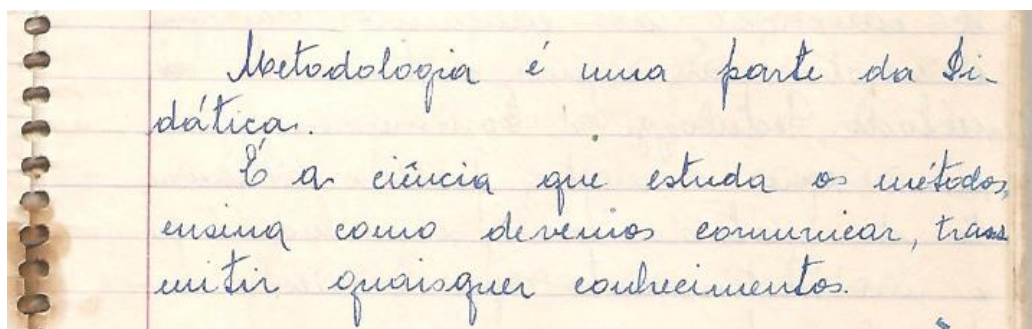 Metodologia é uma parte da Di-
dática.
É a ciência que estuda os métodos,
ensina como devemos comunicar, trans
mitir quaisquer conhecimentos.